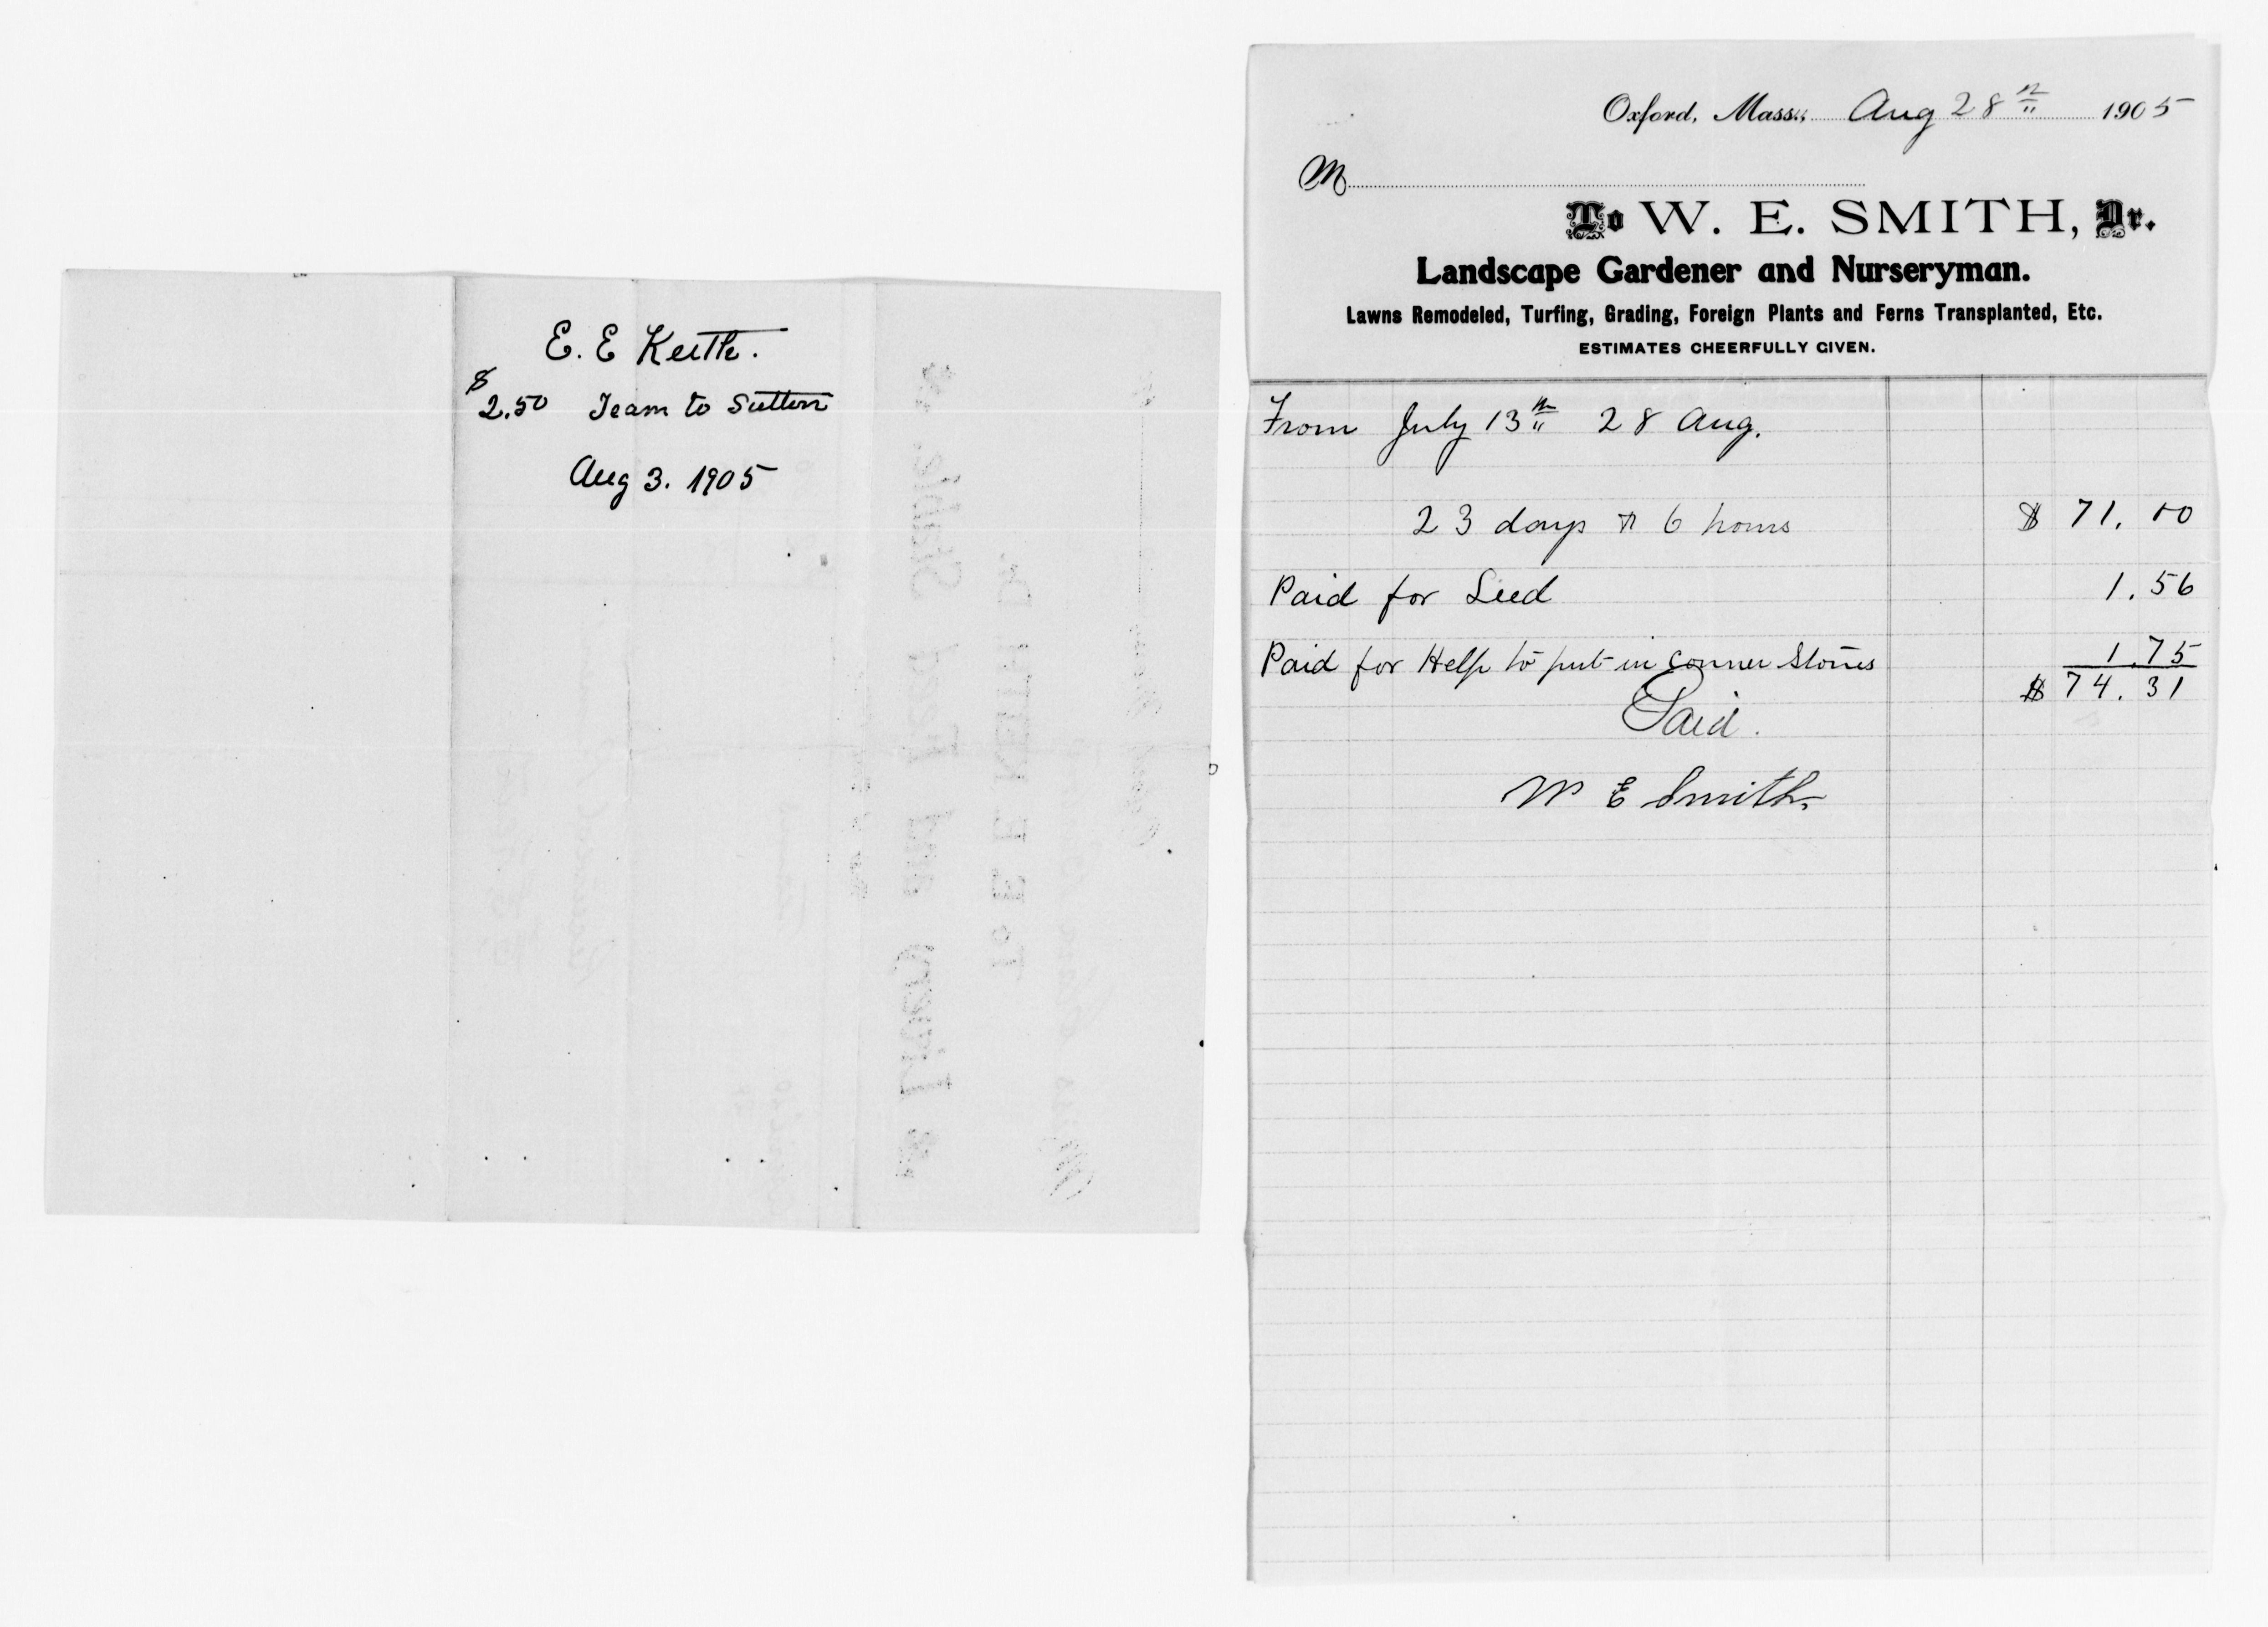 E. E Keith.
$
2.50 Team to Sutton
Aug 3. 1905
Oxford, Mass., Aug 28th 1905
M
To W. E. SMITH, Dr.
Landscape Gardener and Nurseryman.
Lawns Remodeled, Turfing, Grading, Foreign Plants and Ferns Transplanted, Etc.
ESTIMATES CHEERFULLY GIVEN.
From July 13th 28 Aug.
23 days & 6 hours $ 71.00
Paid for Seed 1.56
Paid for Help to put in Conner Stones 1.75
$ 74.31
Paid.
W E Smith.